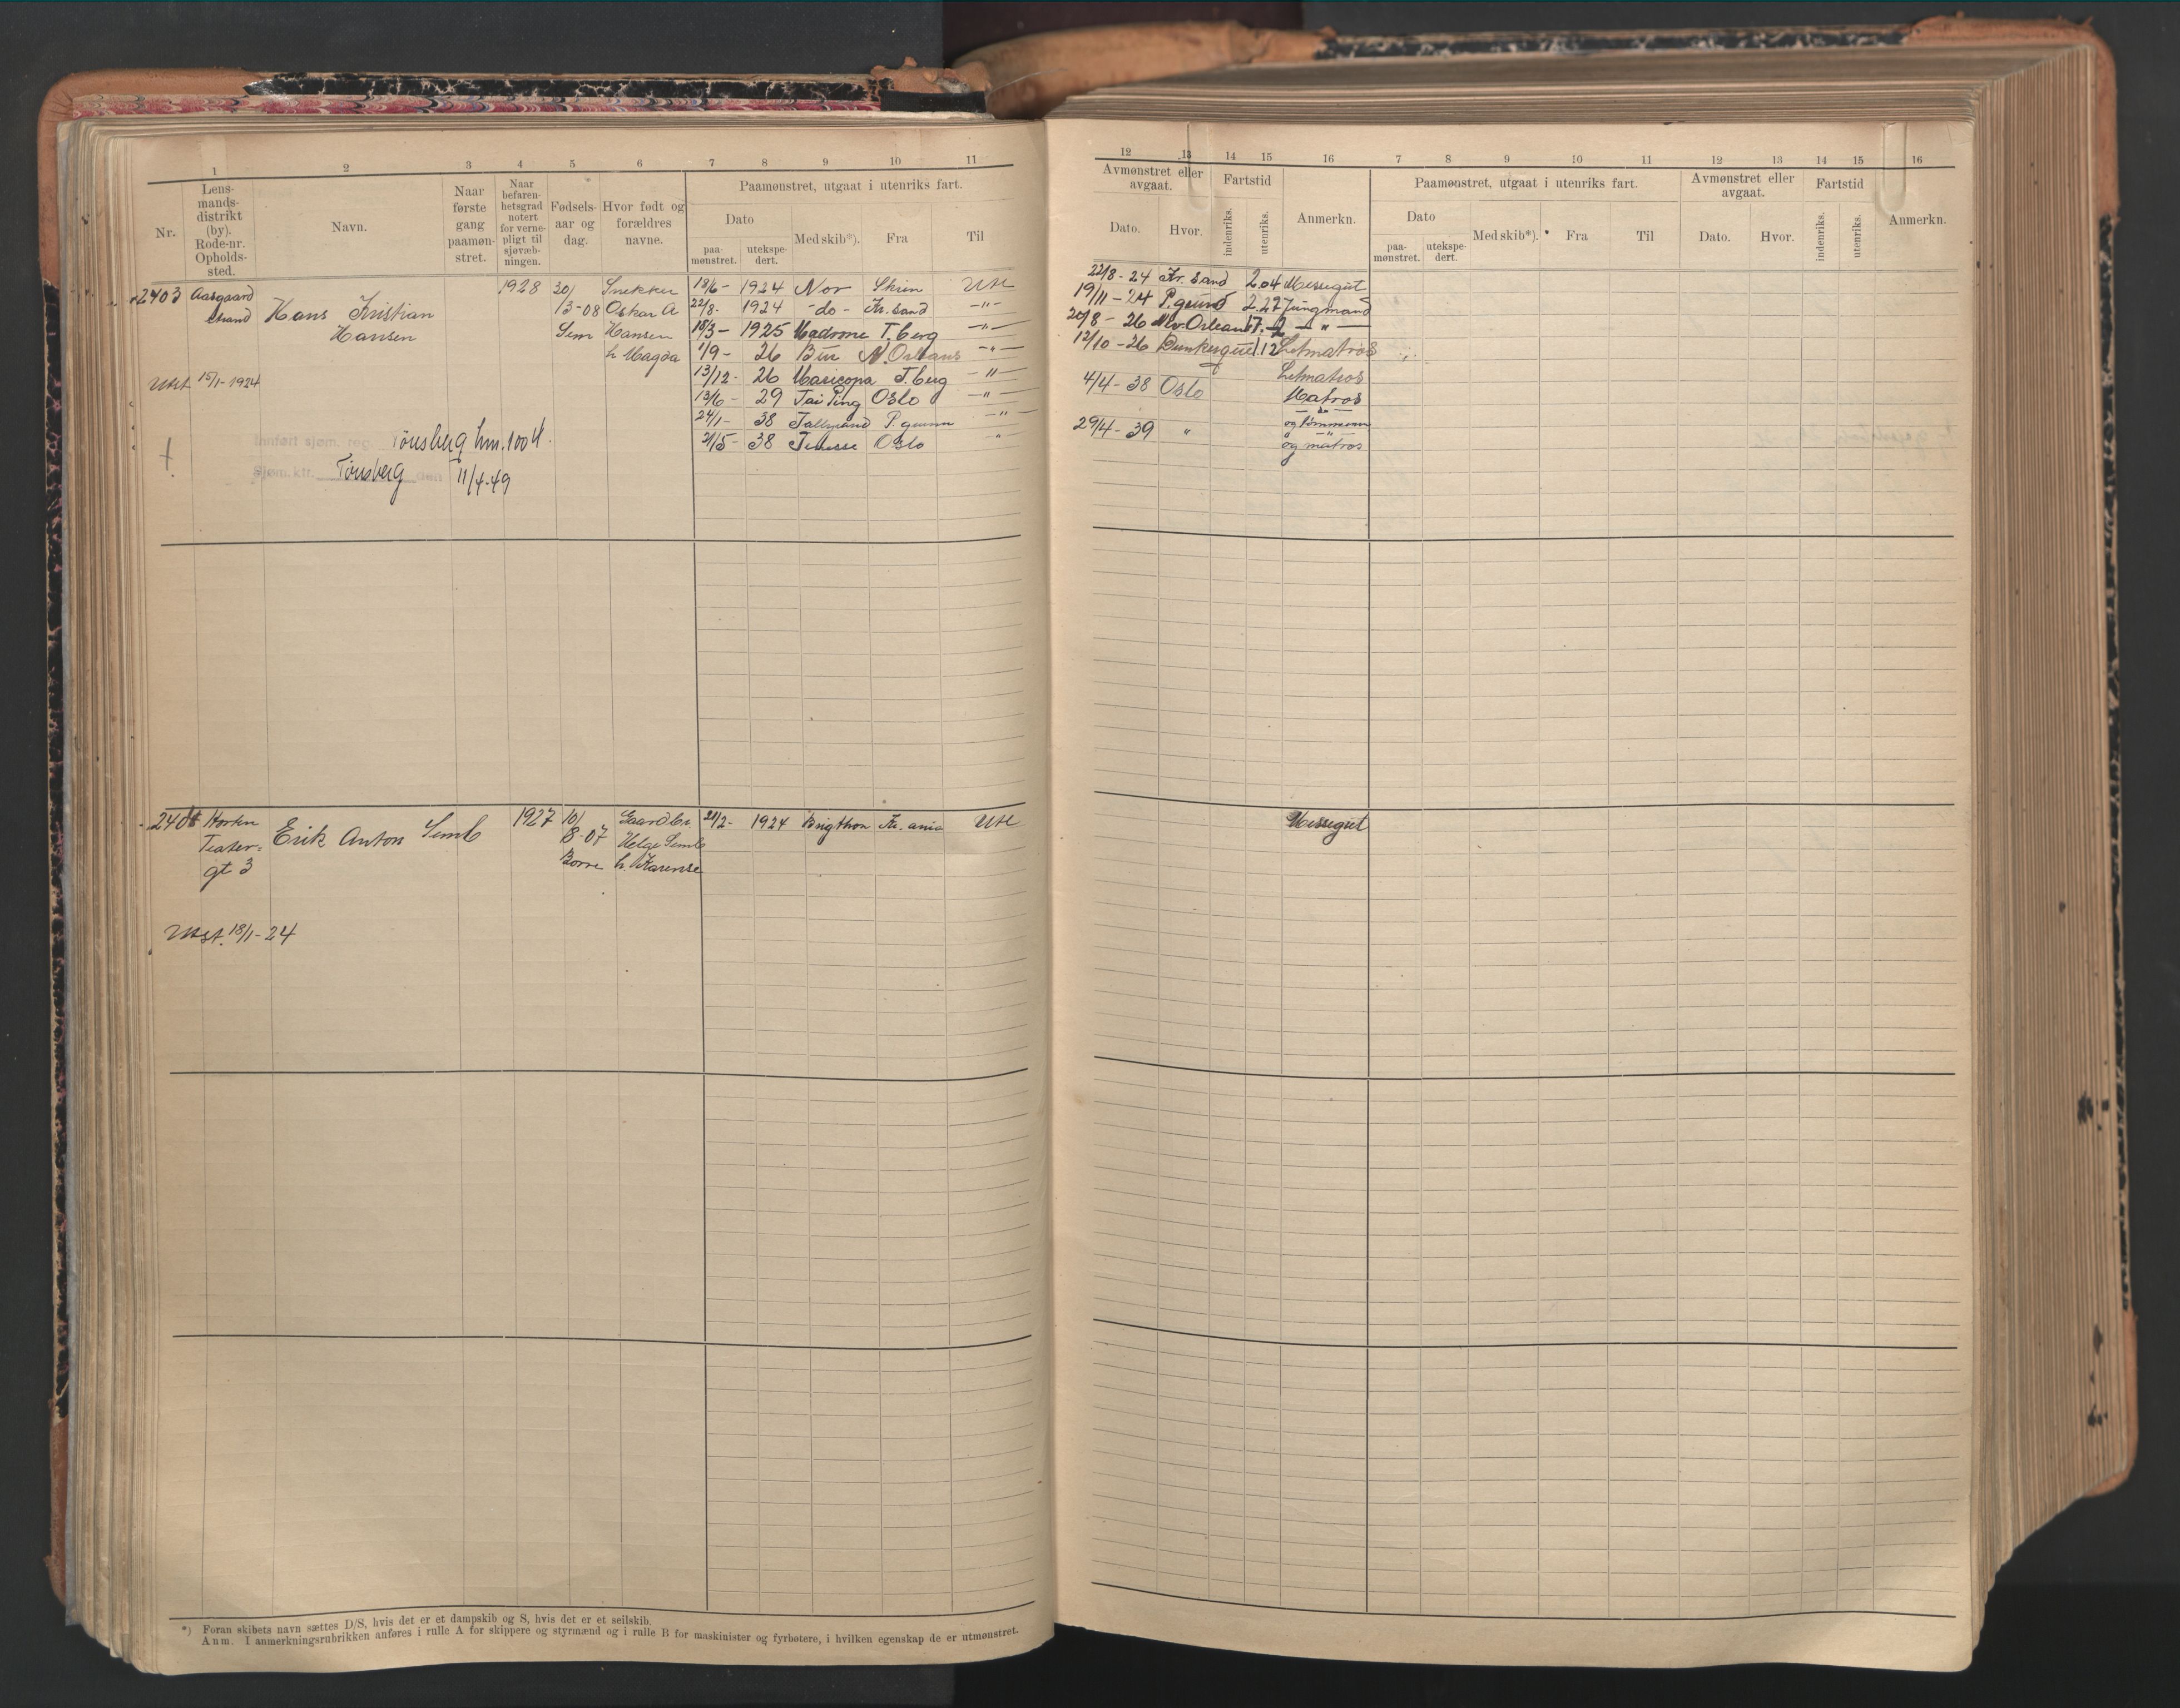 1 2 3 4 5 6 7 8 9 10 11
Nr.
Lens-
mands-
distrikt
(by).
Rode-nr.
Opholds-
sted.
Navn.
Naar
første
gang
paamøn-
stret.
Naar
befaren-
hetsgrad
notert
for verne-
pligt til
sjøvæb-
ningen.
Fødsels-
aar og
dag.
Hvor født og
forældres
navne.
Paamønstret, utgaat i utenriks fart.
Dato
paa-
mønstret.
utekspe-
dert.
Med skib*).
Fra
Til
2403 Aasgaard
strand
Hans Kristian
Hansen
1928
20/
3-08
Sem
Snekker
Oskar A
Hansen
h Magda
18/6- 1924 Nor Skien Utl
22/8- 1924 -do- Kr.sand -"-
18/3- 1925 Madrone T.berg -"-
1/9- 26 Bur N.Orleans -"-
13/12- 26 Maricopa T.berg -"-
13/6- 29 Tai Ping Oslo -"-
24/1- 38 P.grunn -"-
21/5- 38 Oslo "
Utst 15/1-1924
Innført sjøm. reg. Tønsberg hm. 1004.
Sjøm.ktr. Tønsberg den 11/4-49
2404 Horten
Teater-
gt 3
Erik Anton Semb
1927
10/
8-07
Borre
Gaardbr.
Helge Semb
h.
21/2- 1924 Brigthon Kr.ania Utl
Utst. 18/1-24
*) Foran skibets navn sættes D/S, hvis det er et dampskib og S, hvis det er et seilskib.
Anm. I anmerkningsrubrikken anføres i rulle A for skippere og styrmænd og i rulle B for maskinister og fyrbøtere, i hvilken egenskap de er utmønstret.
12 13 14 15 16 7 8 9 10 11 12 13 14 15 16
Avmønstret eller
avgaat.
Dato.
Hvor.
Fartstid
indenriks.
utenriks.
Anmerkn.
Paamønstret, utgaat i utenriks fart.
Dato
paa-
mønstret.
utekspe-
dert.
Med skib*).
Fra
Til
Avmønstret eller
avgaat.
Dato.
Hvor.
Fartstid
indenriks.
utenriks.
Anmerkn.
22/8-24 Kr.sand 2.04 Messegut
19/11-24 P.grund 2.27 Jungmand
20/8-26 Nw.Orleans 17. -"-
12/10-26 Dunkerque 1 12 Letmatros
Letmatros
4/4-38 Oslo
Matros
-do-
29/4-39 "
og tømmerm
-"-
og matros
Messegut